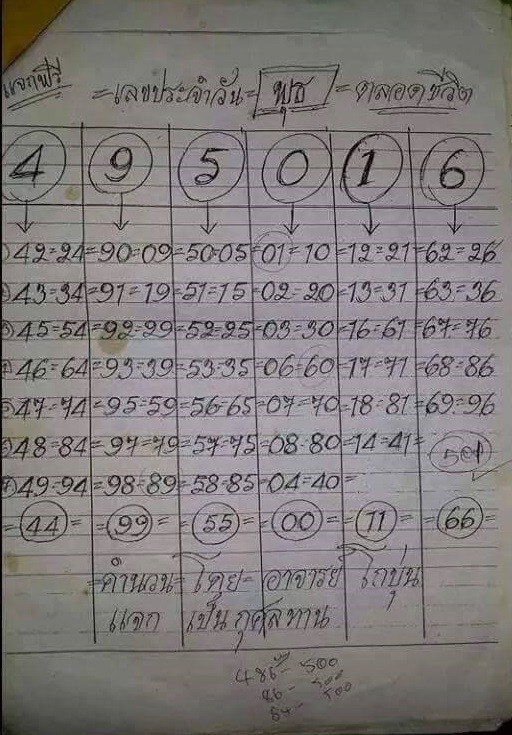 แจกฟรี
=เลขประจำวัน= พุธ =ตลอดชีวิต
4 9 5 0 1 6
42=24=90=09=50=05=01=10=12=21=62=26
43=34=91=19=51=15=02=20=13=31=63=36
45=54=92=29=52=25=03=30=16=61=67=76
46=64=93=39=53=35=06=60=17=71=68=86
47=74=95=59=56=65=07=70=18=81=69=96
48=84=97=79=57=75=08=80=14=41=
501
49=94=98=89=58=85=04=40=
=44= =99= =55= =00= =11= =66=
=คำนวน=โดย=อาจารย์ โกปุ่น
แจก เป็นกุศลทาน
486- 500
86- 500
84- 500